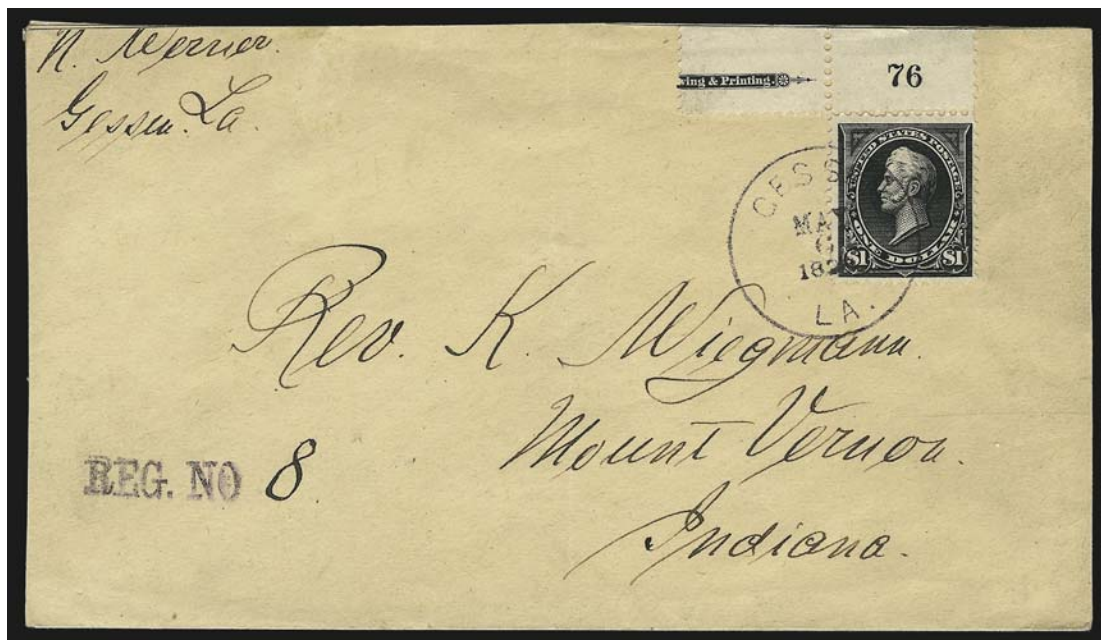 N. Werner.
Gessen. La.
ving & Printing.
76
UNITED STATES POSTAGE
ONE DOLLAR
$1 $1
GESS
MAY
6
18
LA.
Rev. K. Wiegmann.
Mount Vernon.
Indiana.
REG. NO 8